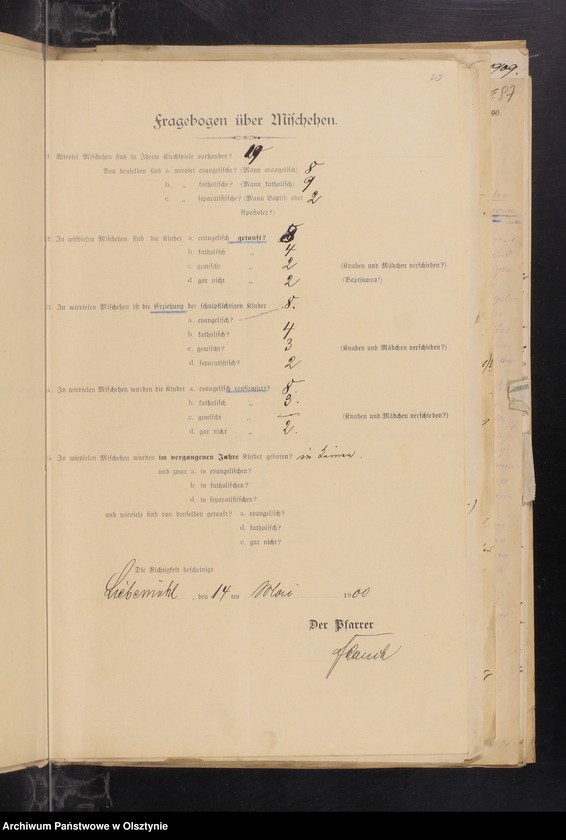 Fragebogen über Mischehen.
1. Wieviel Mischehen sind in Ihrem Kirchspiele vorhanden? 19
Von denselben sind a. wieviel evangelische? (Mann evangelisch) 8
b. „ katholische? (Mann katholisch) 9
c. „ separatistische? (Mann Baptist oder Apostoler?) 2
2. In wievielen Mischehen sind die Kinder a. evangelisch getauft? 8
b. katholisch „ 4
c. gemischt „ 2 (Knaben und Mädchen verschieden?)
d. gar nicht „ 2 (Baptismus!)
3. In wievielen Mischehen ist die Erziehung der schulpflichtigen Kinder 8.
a. evangelisch?
b. katholisch? 4
c. gemischt? 3 (Knaben und Mädchen verschieden?)
d. separatistisch? 2
4. In wievielen Mischehen wurden die Kinder a. evangelisch confirmirt? 8
b. katholisch „ 3.
c. gemischt „ — (Knaben und Mädchen verschieden?)
d. gar nicht „ 2.
5. In wievielen Mischehen wurden im vergangenen Jahre Kinder geboren? in
und zwar a. in evangelischen?
b. in katholischen?
d. in separatistischen?
und wieviele sind von denselben getauft? a. evangelisch?
d. katholisch?
c. gar nicht?
Die Richtigkeit bescheinigt
Liebemühl, den 14 ten Mai 1900
Der Pfarrer
1909.
97
90
Archiwum Państwowe w Olsztynie